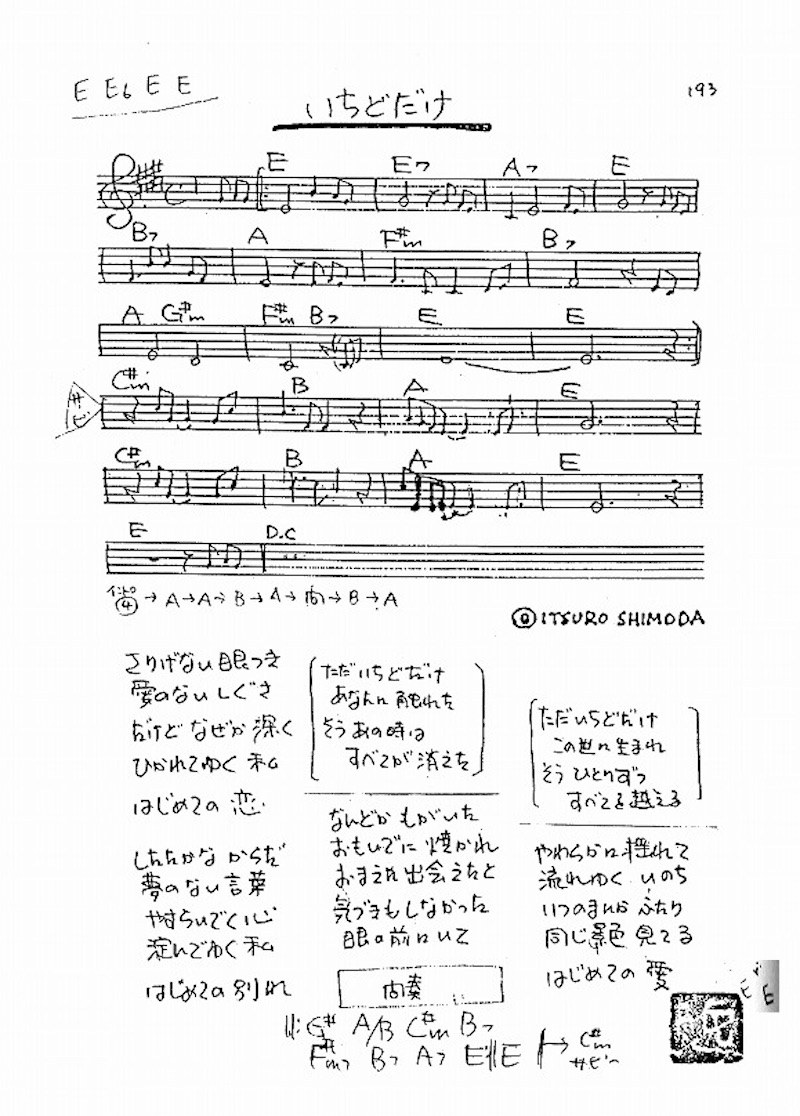 E E6 E E
193
いちどだけ
E E7 A7 E
B7 A F#m B7
A G#m F#m B7 E E
C#m B A E
サビ
C#m B A E
E D.C
→ A → A → B → A → 間 → B → A
© ITSURO SHIMODA
さりげない眼つき
愛のないしぐさ
だけど なぜか 深く
ひかれてゆく 私
はじめての 恋
したたかな からだ
夢のない 言葉
やすらいでく 心
淀んでゆく 私
はじめての 別れ
ただいちどだけ
あなたに 触れた
そう あの時は
すべてが 消えた
なんどか もがいた
おもいでに 焼かれ
おまえに 出会えたと
気づきもしなかった
眼の前にいて
間奏
ただいちどだけ
この世に 生まれ
そう ひとりずつ
すべてを 越える
やわらかに 揺れて
流れゆく いのち
いつのまにか ふたり
同じ景色 見てる
はじめての 愛
G# A/B C#m B7
F#m7 B7 A7 E E → C#m
サビへ